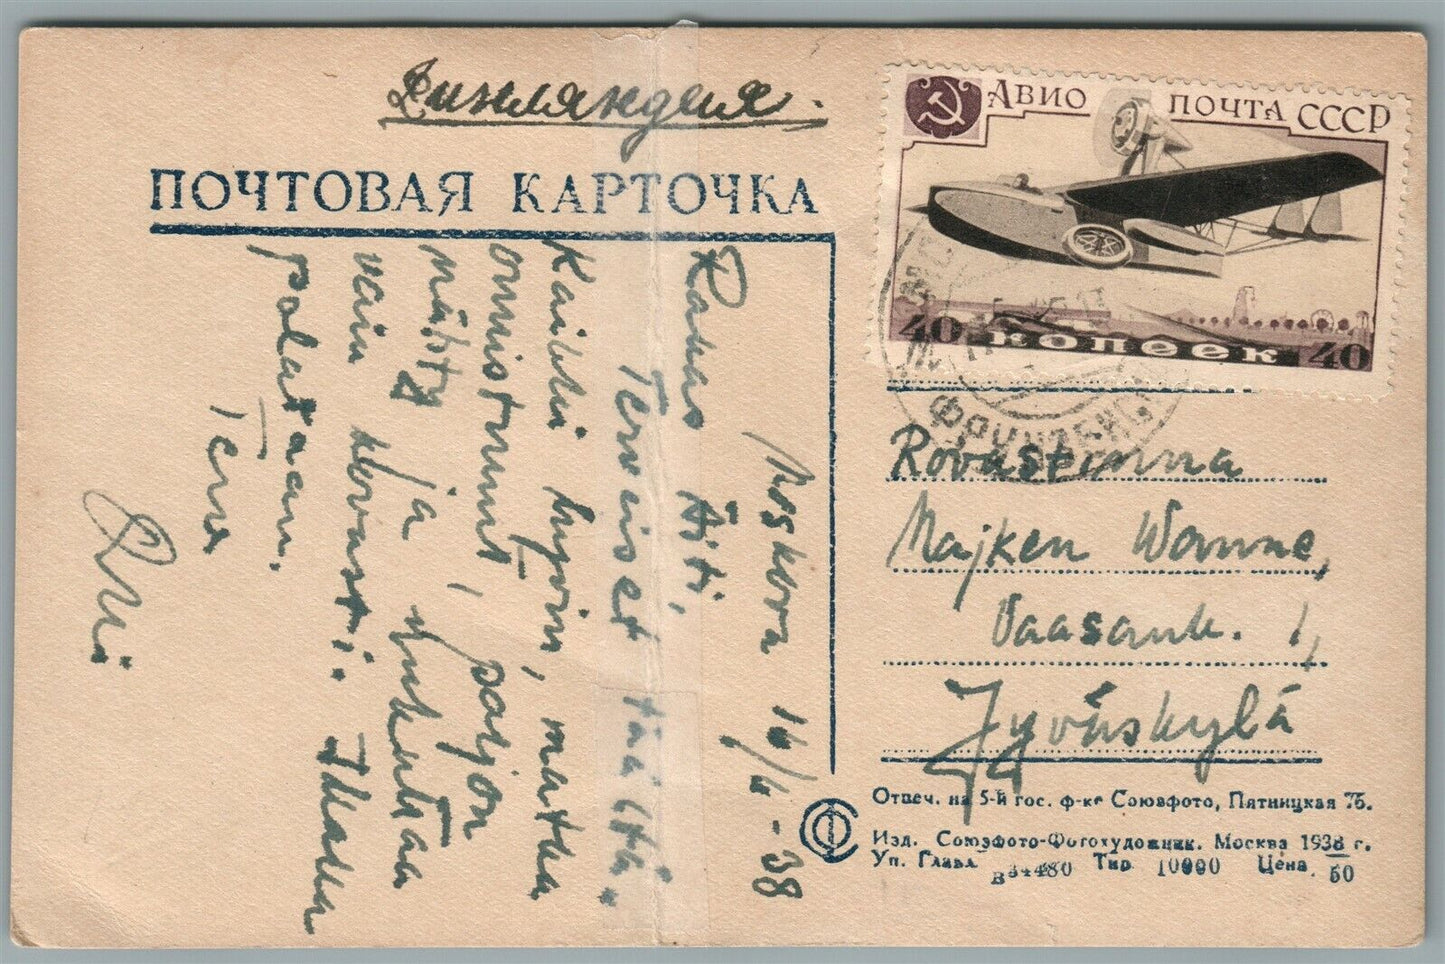 Финляндия.
ПОЧТОВАЯ КАРТОЧКА
АВИО ПОЧТА СССР
40 КОПЕЕК 40
Moskova 16/6 -38
Rakas Äiti,
Terveiset täältä.
Kaikki hyvin, matka
onnistunut, paljon
nähty ja
vain hovasti. Ikävä
palataan.
Terv
Rovastinna
Majken Wanne,
Vaasank. 1,
Jyväskylä
Отпеч. на 5-й гос. ф-ке Союзфото, Пятницкая 75.
Изд. Союзфото-Фотохудожник. Москва 1938 г.
Уп. Главл. В34480 Тир. 10000 Цена 50